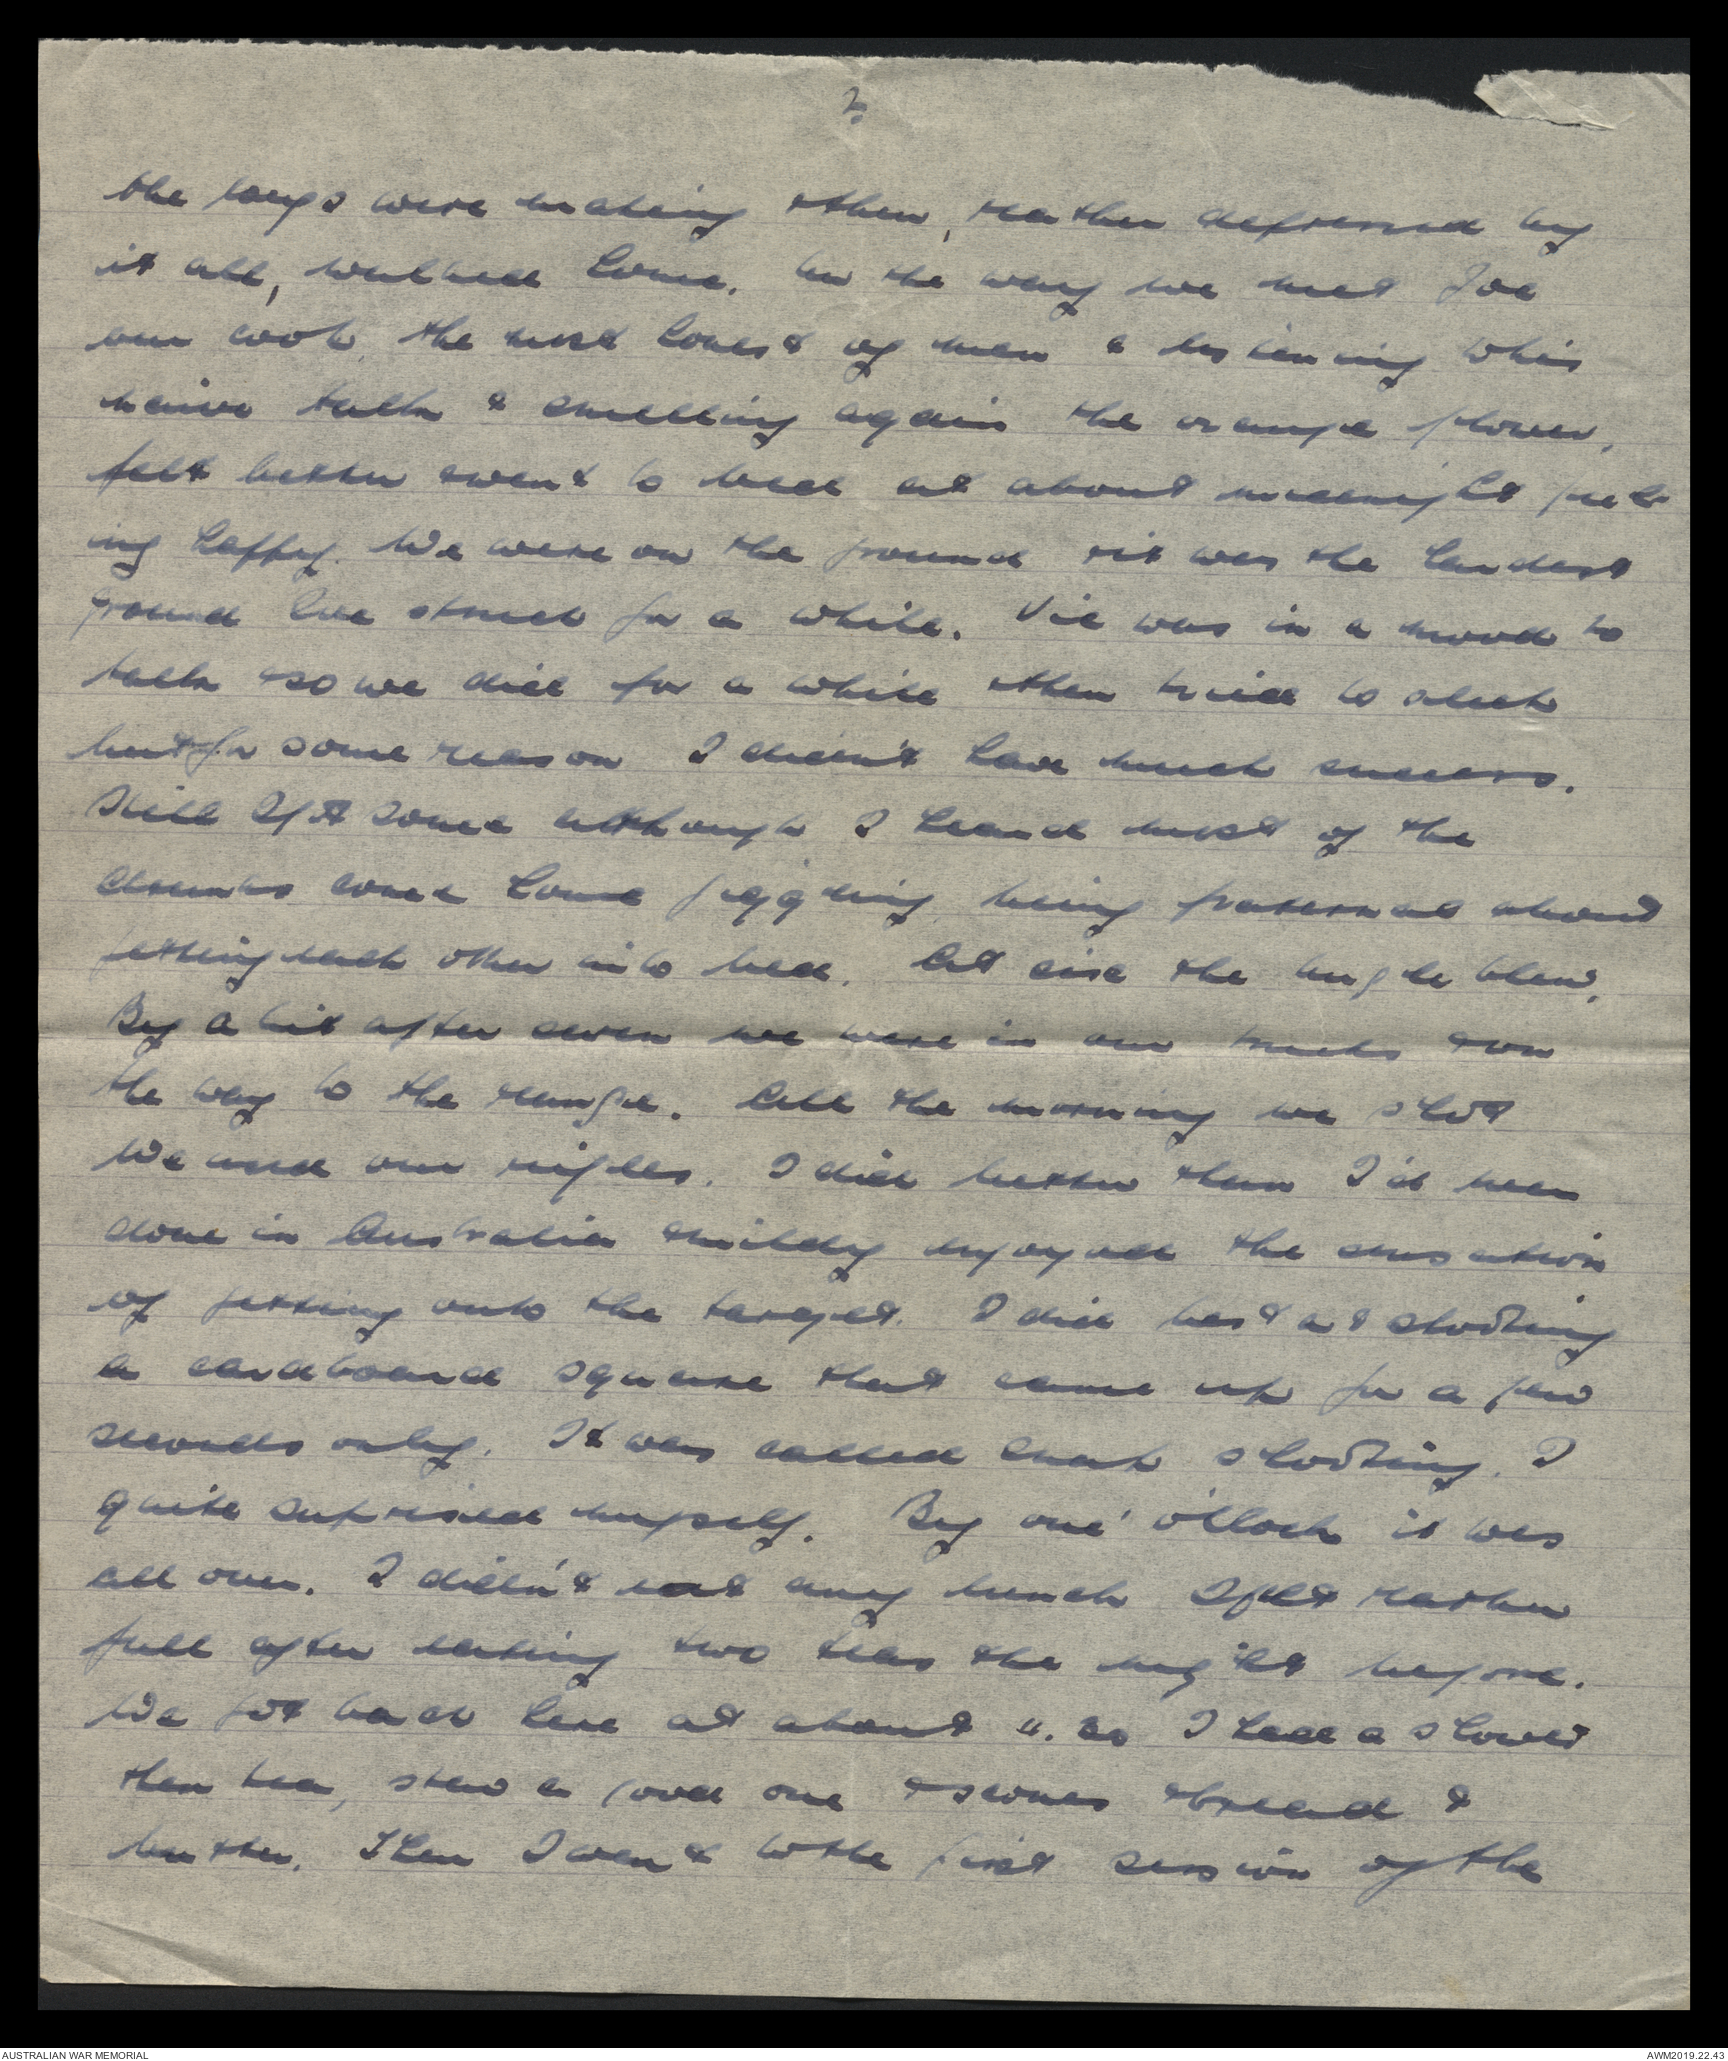 2.
the boys were making & then, rather depressed by
it all, walked home. On the way we met Joe
our cook, the most honest of men & listening to his
naive talk & smelling again the orange flower,
felt better & went to bed at about midnight feel-
ing happy. We were on the ground & it was the hardest
ground I've struck for a while. Vic was in a mood to
talk & so we did for a while & then tried to sleep
but for some reason I didn't have much success.
Still I got some although I heard most of the
drunks come home giggling, being fraternal about
getting each other into bed. At six the bugle blew.
By a bit after seven we were in our trucks & on
the way to the range. All the morning we shot
We used our rifles. I did better than I'd been
done in Australia & mildly enjoyed the sensation
of getting onto the target. I did best at shooting
a cardboard square that came up for a few
seconds only. It was called snap shooting. I
quite suprised myself. By one o'clock it was
all over. I didn't eat any lunch I felt rather
full after eating two teas the night before.
We got back here at about I had a shower
then tea, stew a good one & scones & bread &
butter. Then I went to the first session of the
AUSTRALIAN WAR MEMORIAL
AWM2019.22.43